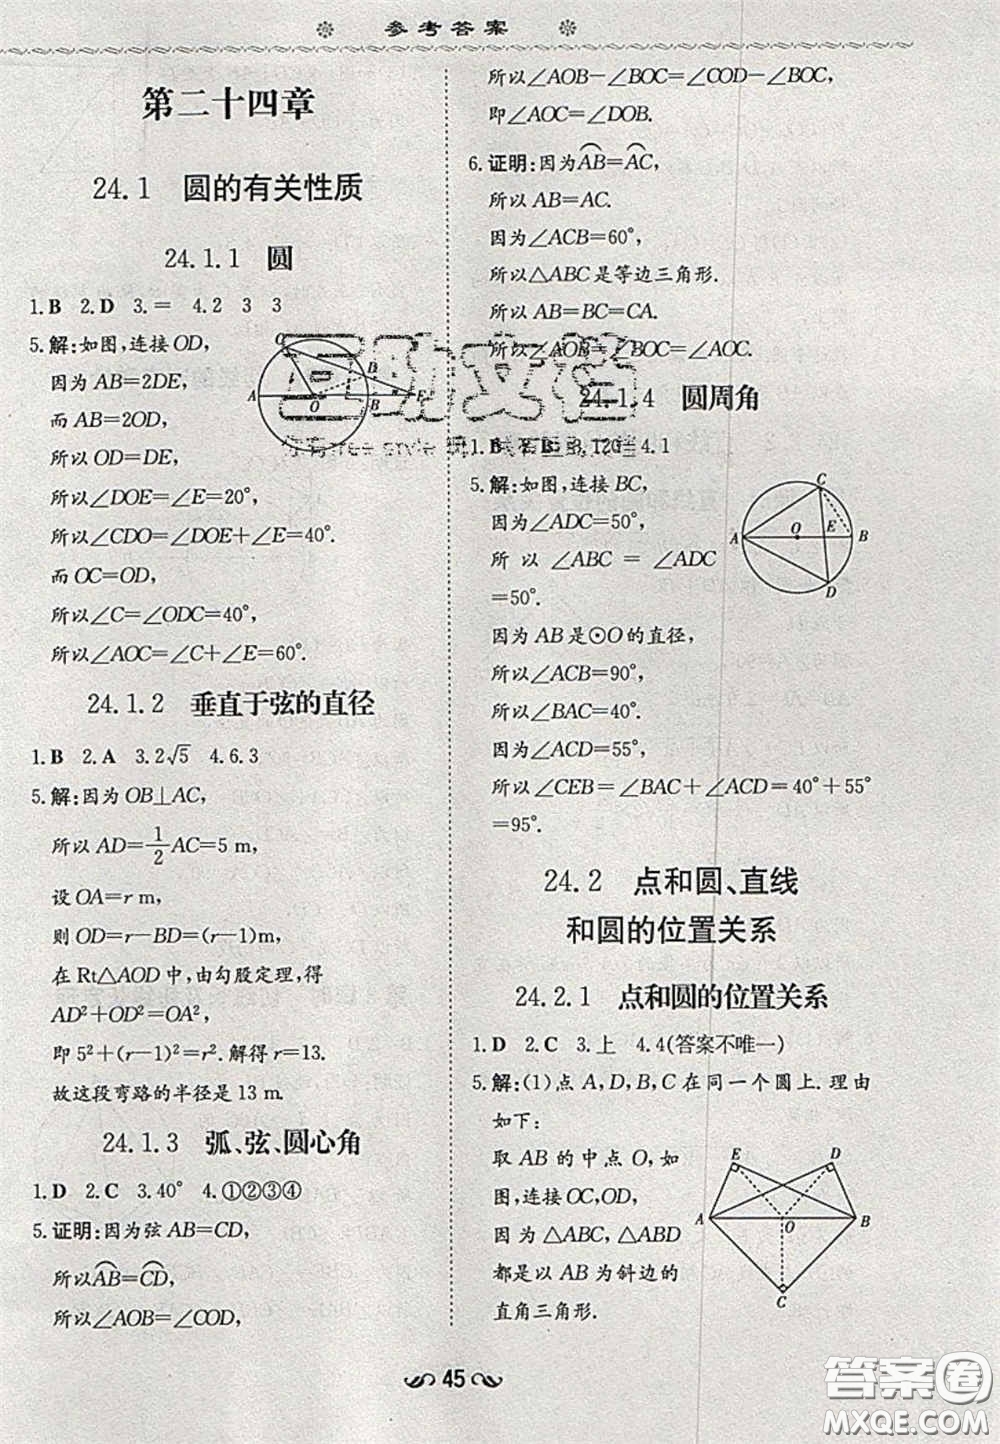 参考答案
第二十四章
24.1 圆的有关性质
24.1.1 圆
1.B 2.D 3.= 4.2 3 3
5.解:如图,连接OD,
因为AB=2DE,
而AB=2OD,
所以OD=DE,
所以∠DOE=∠E=20°,
所以∠CDO=∠DOE+∠E=40°.
而OC=OD,
所以∠C=∠ODC=40°,
所以∠AOC=∠C+∠E=60°.
A O B E
24.1.2 垂直于弦的直径
1.B 2.A 3.2√5 4.6.3
5.解:因为OB⊥AC,
所以AD=1/2AC=5 m,
设OA=r m,
则OD=r-BD=(r-1)m,
在Rt△AOD中,由勾股定理,得
AD²+OD²=OA²,
即5²+(r-1)²=r².解得r=13.
故这段弯路的半径是13 m.
24.1.3 弧、弦、圆心角
1.D 2.C 3.40° 4.①②③④
5.证明:因为弦AB=CD,
所以⌒AB=⌒CD,
所以∠AOB=∠COD,
所以∠AOB-∠BOC=∠COD-∠BOC,
即∠AOC=∠DOB.
6.证明:因为⌒AB=⌒AC,
所以AB=AC.
因为∠ACB=60°,
所以△ABC是等边三角形.
所以AB=BC=CA.
所以∠AOB=∠BOC=∠AOC.
互助文档
24.1.4 圆周角
1.B 4.1
5.解:如图,连接BC,
因为∠ADC=50°,
所以∠ABC=∠ADC
=50°.
因为AB是⊙O的直径,
所以∠ACB=90°,
所以∠BAC=40°.
因为∠ACD=55°,
所以∠CEB=∠BAC+∠ACD=40°+55°
=95°.
C
A O E B
D
24.2 点和圆、直线
和圆的位置关系
24.2.1 点和圆的位置关系
1.D 2.C 3.上 4.4(答案不唯一)
5.解:(1)点A,D,B,C在同一个圆上.理由
如下:
取AB的中点O,如
图,连接OC,OD,
因为△ABC,△ABD
都是以AB为斜边的
直角三角形.
E D
A O B
C
45
答案圈
MXQE.COM